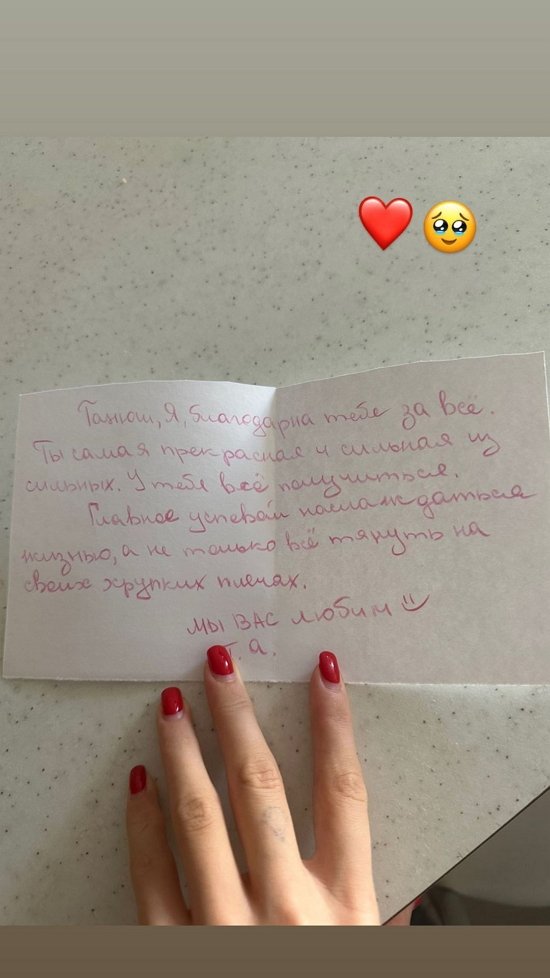 Танюш, Я, благодарна тебе за всё.
Ты самая прекрасная и сильная из
сильных. У тебя всё получиться.
Главное успевай наслаждаться
жизнью, а не только всё тянуть на
своих хрупких плечах.
МЫ ВАС любим
Т. А.